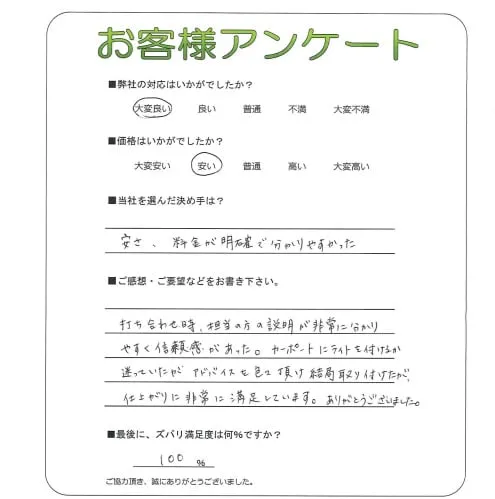 お客様アンケート
■弊社の対応はいかがでしたか？
大変良い 良い 普通 不満 大変不満
■価格はいかがでしたか？
大変安い 安い 普通 高い 大変高い
■当社を選んだ決め手は？
安さ、料金が明確で分かりやすかった
■ご感想・ご要望などをお書き下さい。
打ち合わせ時、担当の方の説明が非常に分かり
やすく信頼感があった。カーポートにライトを付けるか
迷っていたがアドバイスを 頂け結局取り付けたが、
仕上がりに非常に満足しています。ありがとうございました。
■最後に、ズバリ満足度は何％ですか？
100 %
ご協力頂き、誠にありがとうございました。